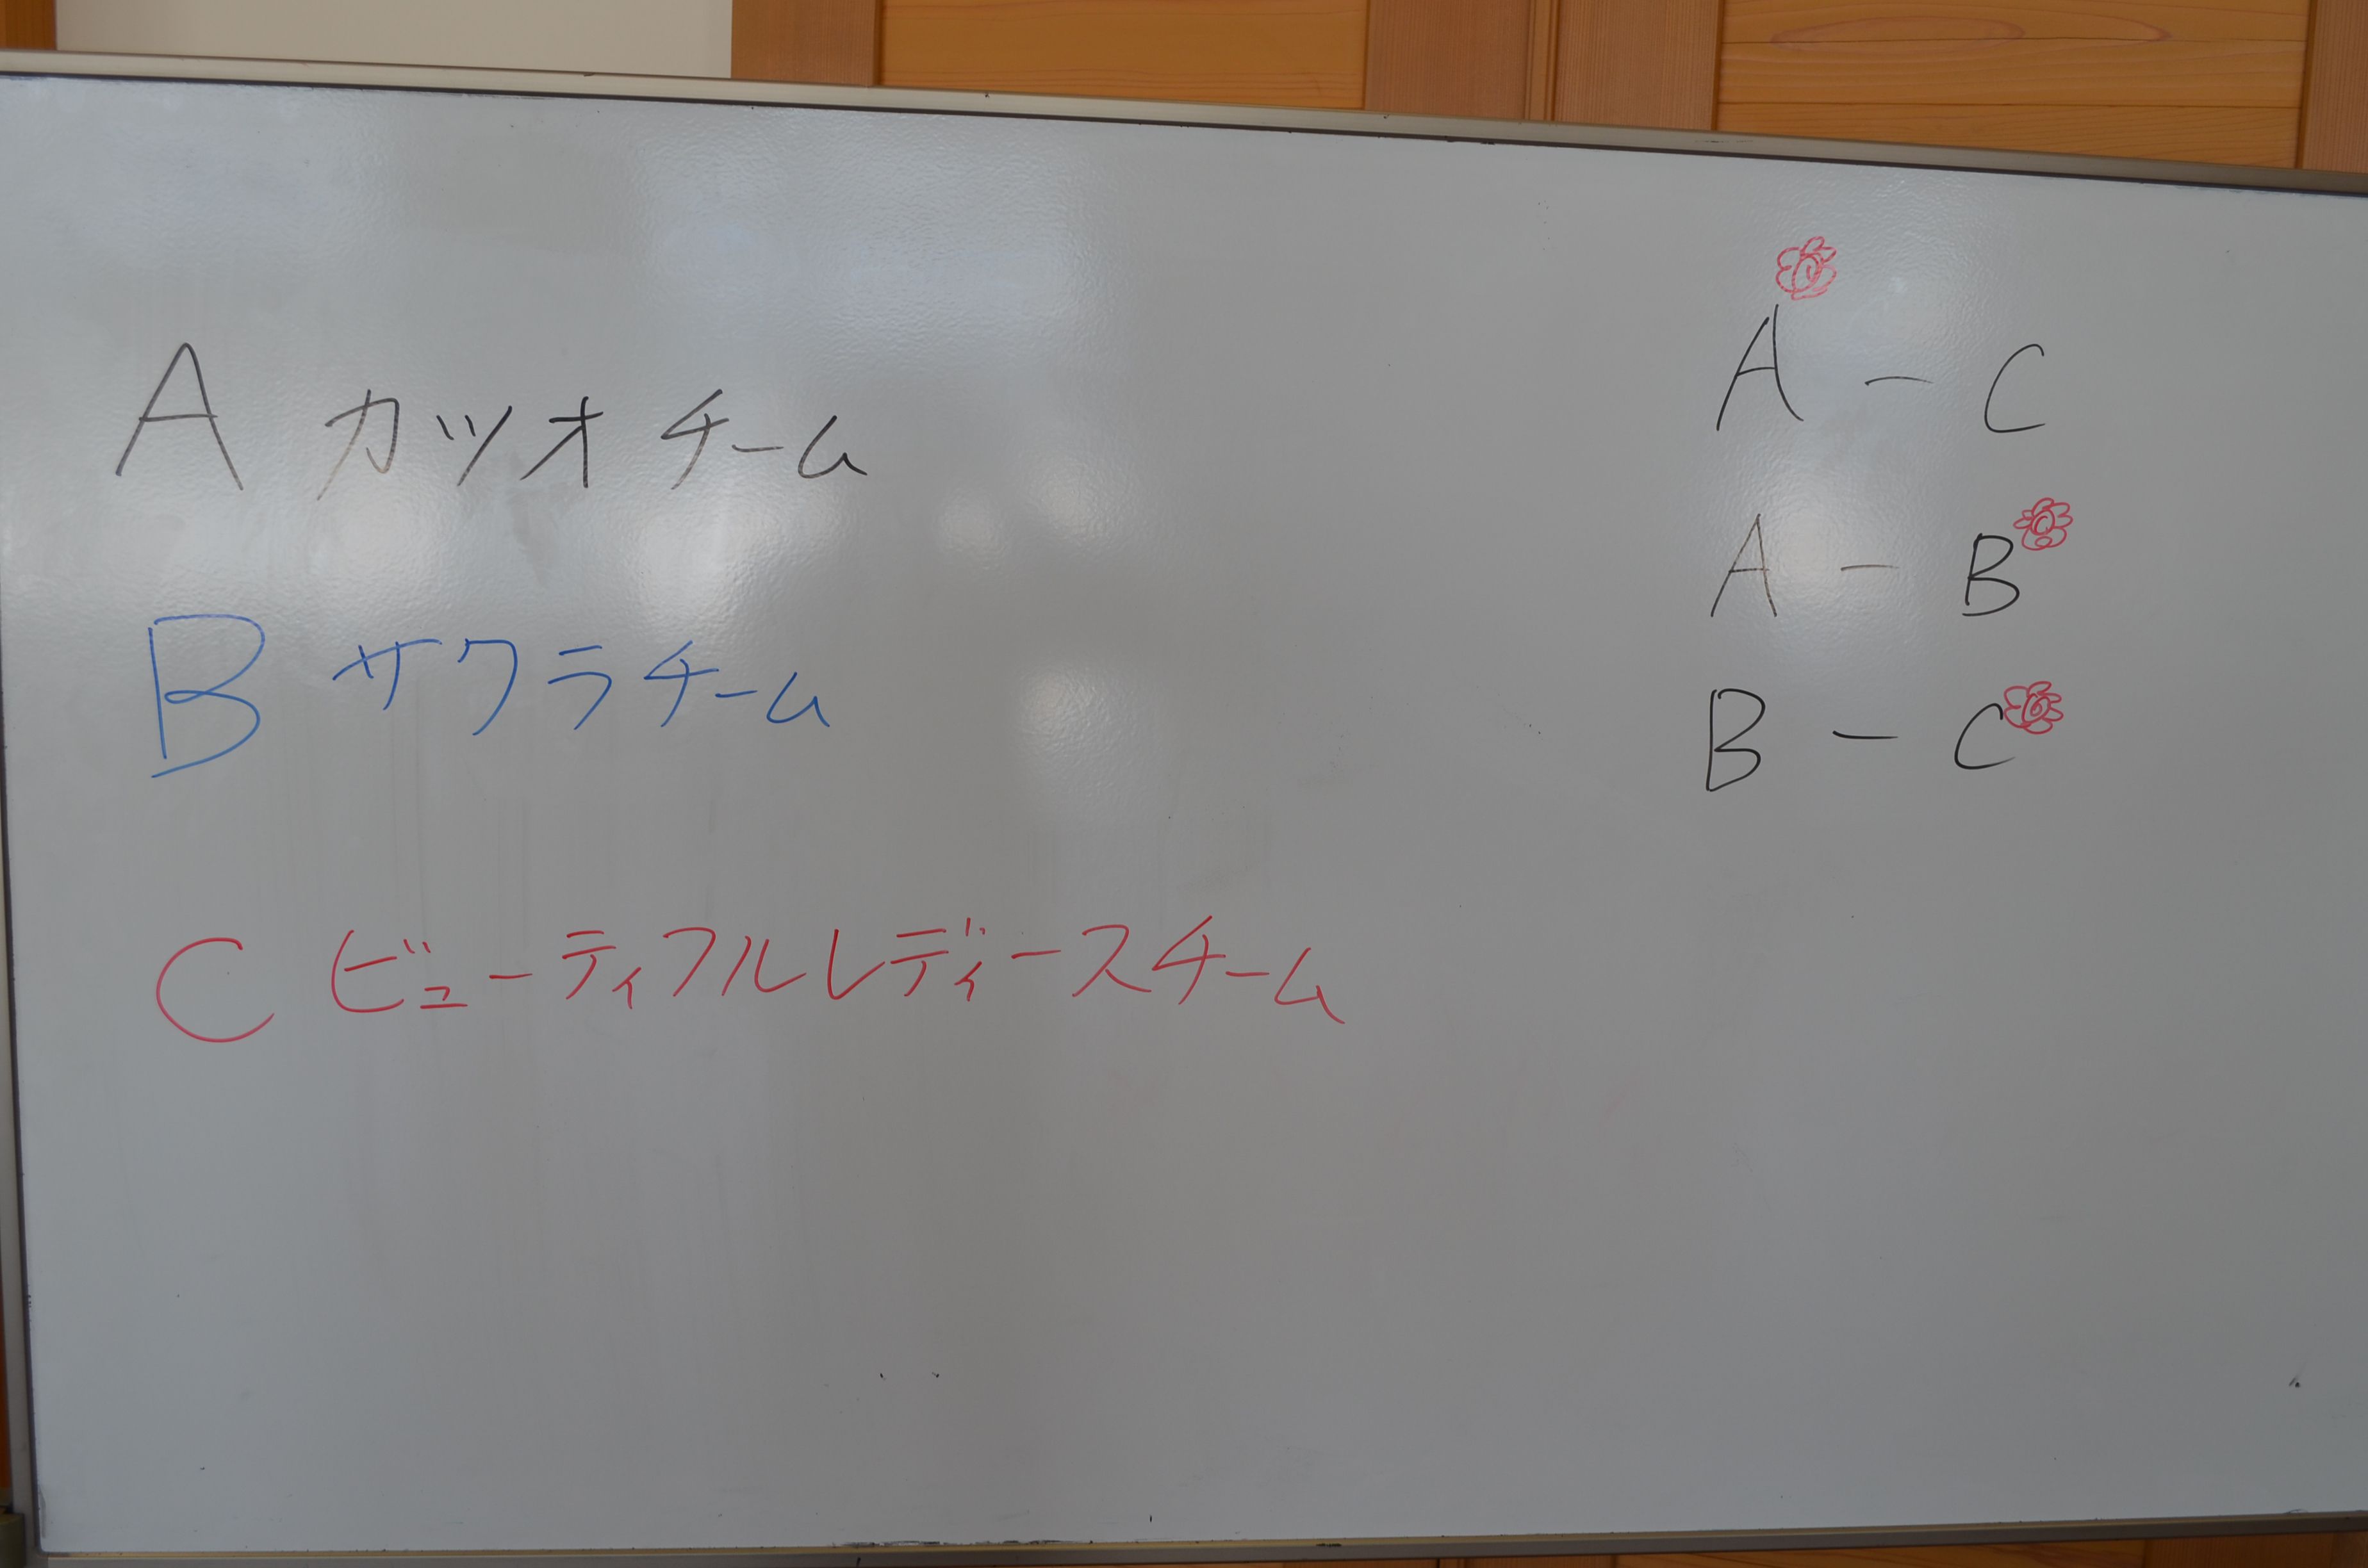 A カツオチーム
B サクラチーム
C ビューティフルレディースチーム
A - C
A - B
B - C